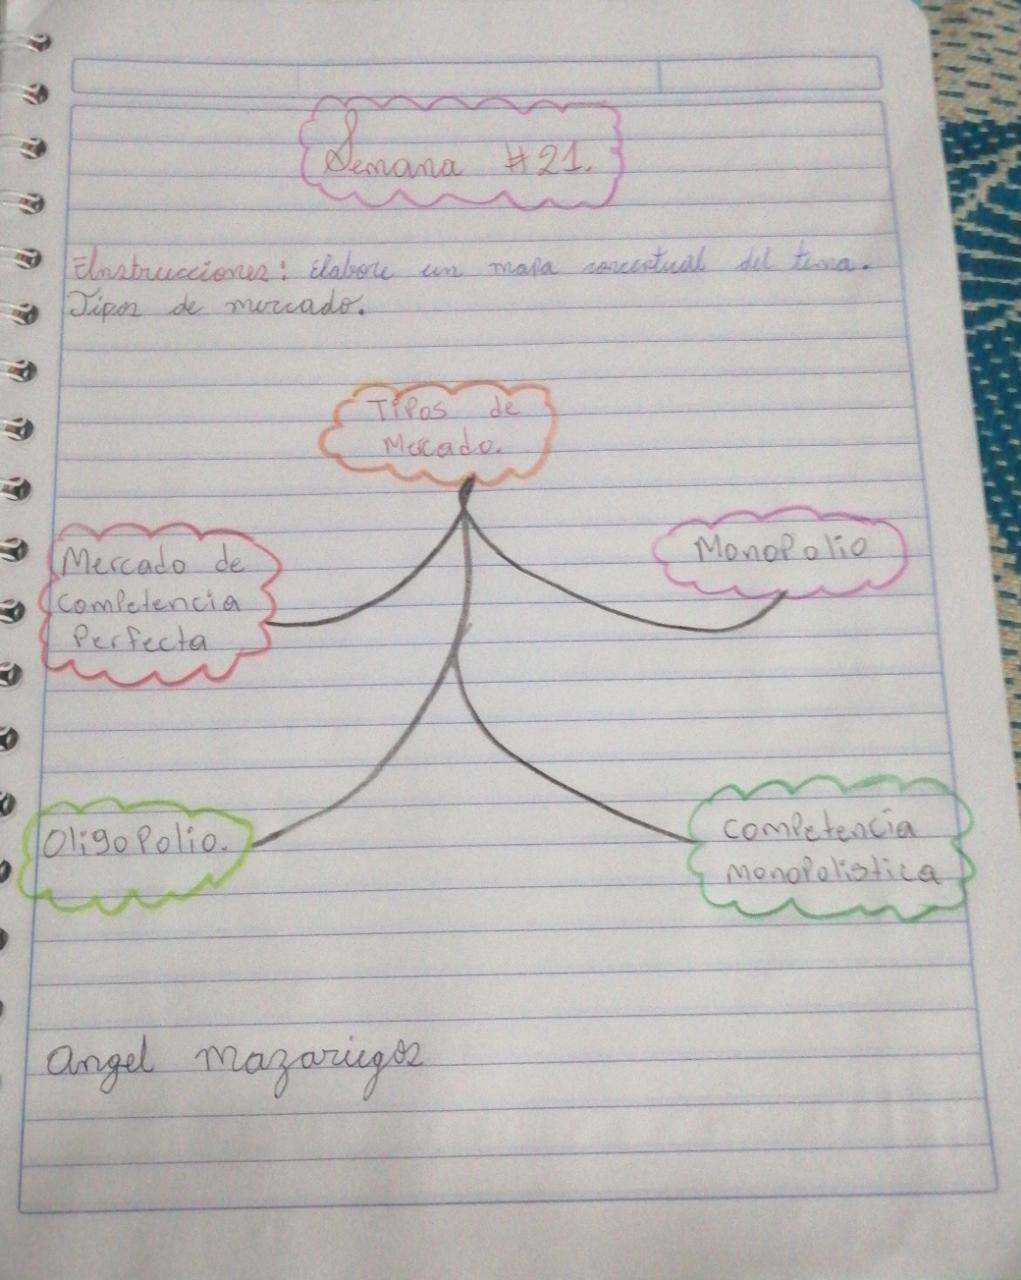 Semana #21.
Instrucciones: Elabore un mapa conceptual del tema.
Tipos de mercado.
Tipos de
Mercado.
Mercado de
competencia
Perfecta
Monopolio
Oligopolio.
competencia
monopolistica
Angel Mazariegos